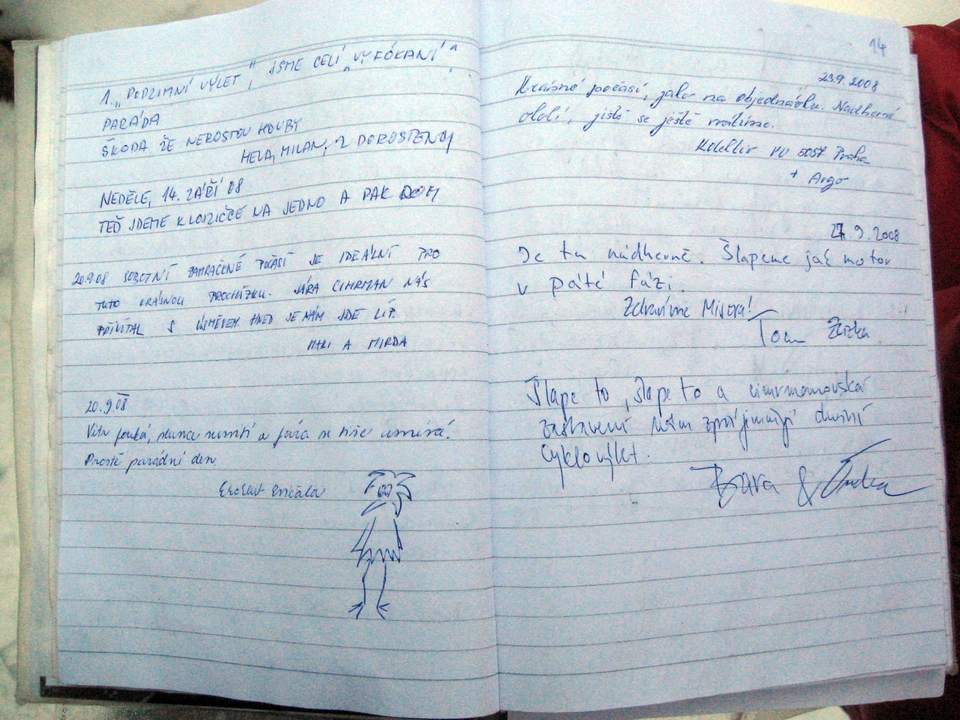 1. „PODZIMNÍ VÝLET“, JSME CELÍ „VYKÓKANÍ“,
PARÁDA
ŠKODA ŽE NEROSTOU HOUBY
HELA, MILAN, Z DOROSTENCI
NEDĚLE, 14. ZÁŘÍ 08
TEĎ JDEME K LOJZIČCE NA JEDNO A PAK DOM
20.9.08 SOBOTNÍ ZAMRAČENÉ POČASÍ JE IDEÁLNÍ PRO
TUTO KRÁSNOU PROCHÁZKU. JÁRA CIMRMAN NÁS
PŘIVÍTAL S ÚSMĚVEM HNED JE NÁM JDE LÍP.
A MIRDA
20.9.08
Vítr fouká, slunce nesvítí a fáza se tiše usmívá.
Prostě parádní den
14
23.9.2008
Krásné počasí, jako na objednávku. Nádherné
okolí, jistě se ještě vrátíme.
Kolektiv VÚ 5057 Praha
+ Argo
27.9.2008
Je tu nádherně. Šlapeme jak motor
v páté fázi.
Zdravíme Mistra!
Tom
Šlape to, šlape to a cimrmanovská
zastavení nám zpříjemňují dnešní
cyklovýlet.
Bára &